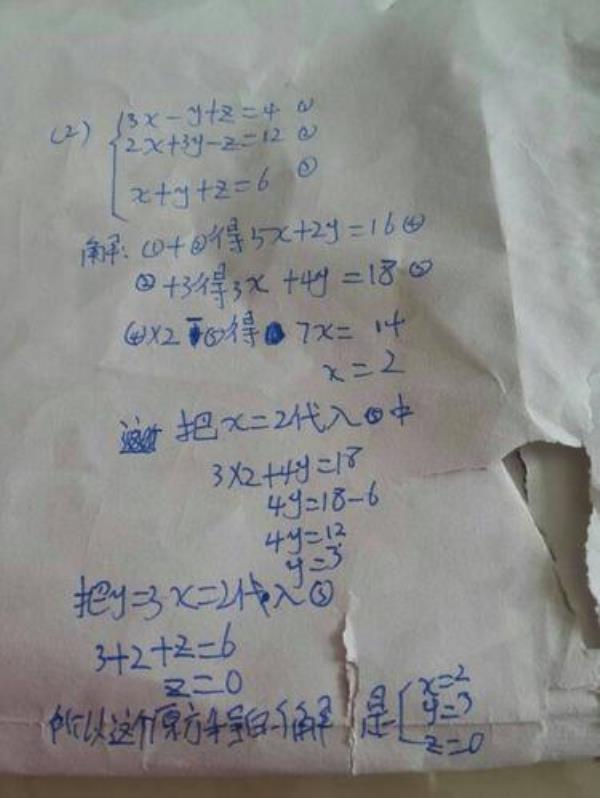 (2) { 3x-y+z=4 ①
2x+3y-z=12 ②
x+y+z=6 ③
解: ①+②得5x+2y=16④
②+3得3x+4y=18⑤
④×2-⑤得 7x=14
x=2
把x=2代入⑤中
3×2+4y=18
4y=18-6
4y=12
y=3
把y=3 x=2代入③
3+2+z=6
z=0
所以这个原方 解 是{ x=2
y=3
z=0